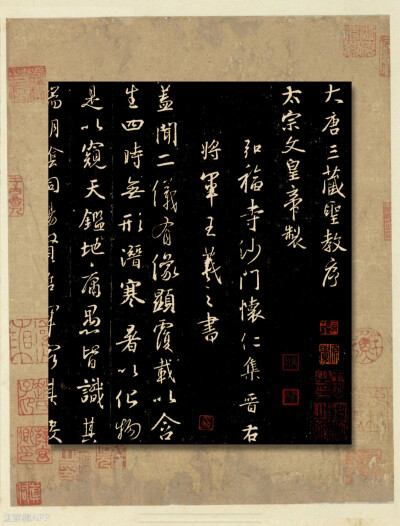 大唐三藏聖教序
太宗文皇帝製
弘福寺沙門懷仁集晉右
將軍王羲之書
蓋聞二儀有像顯覆載以含
生四時無形潛寒暑以化物
是以窺天鑑地庸愚皆識其
端明陰洞陽賢哲罕窮其數